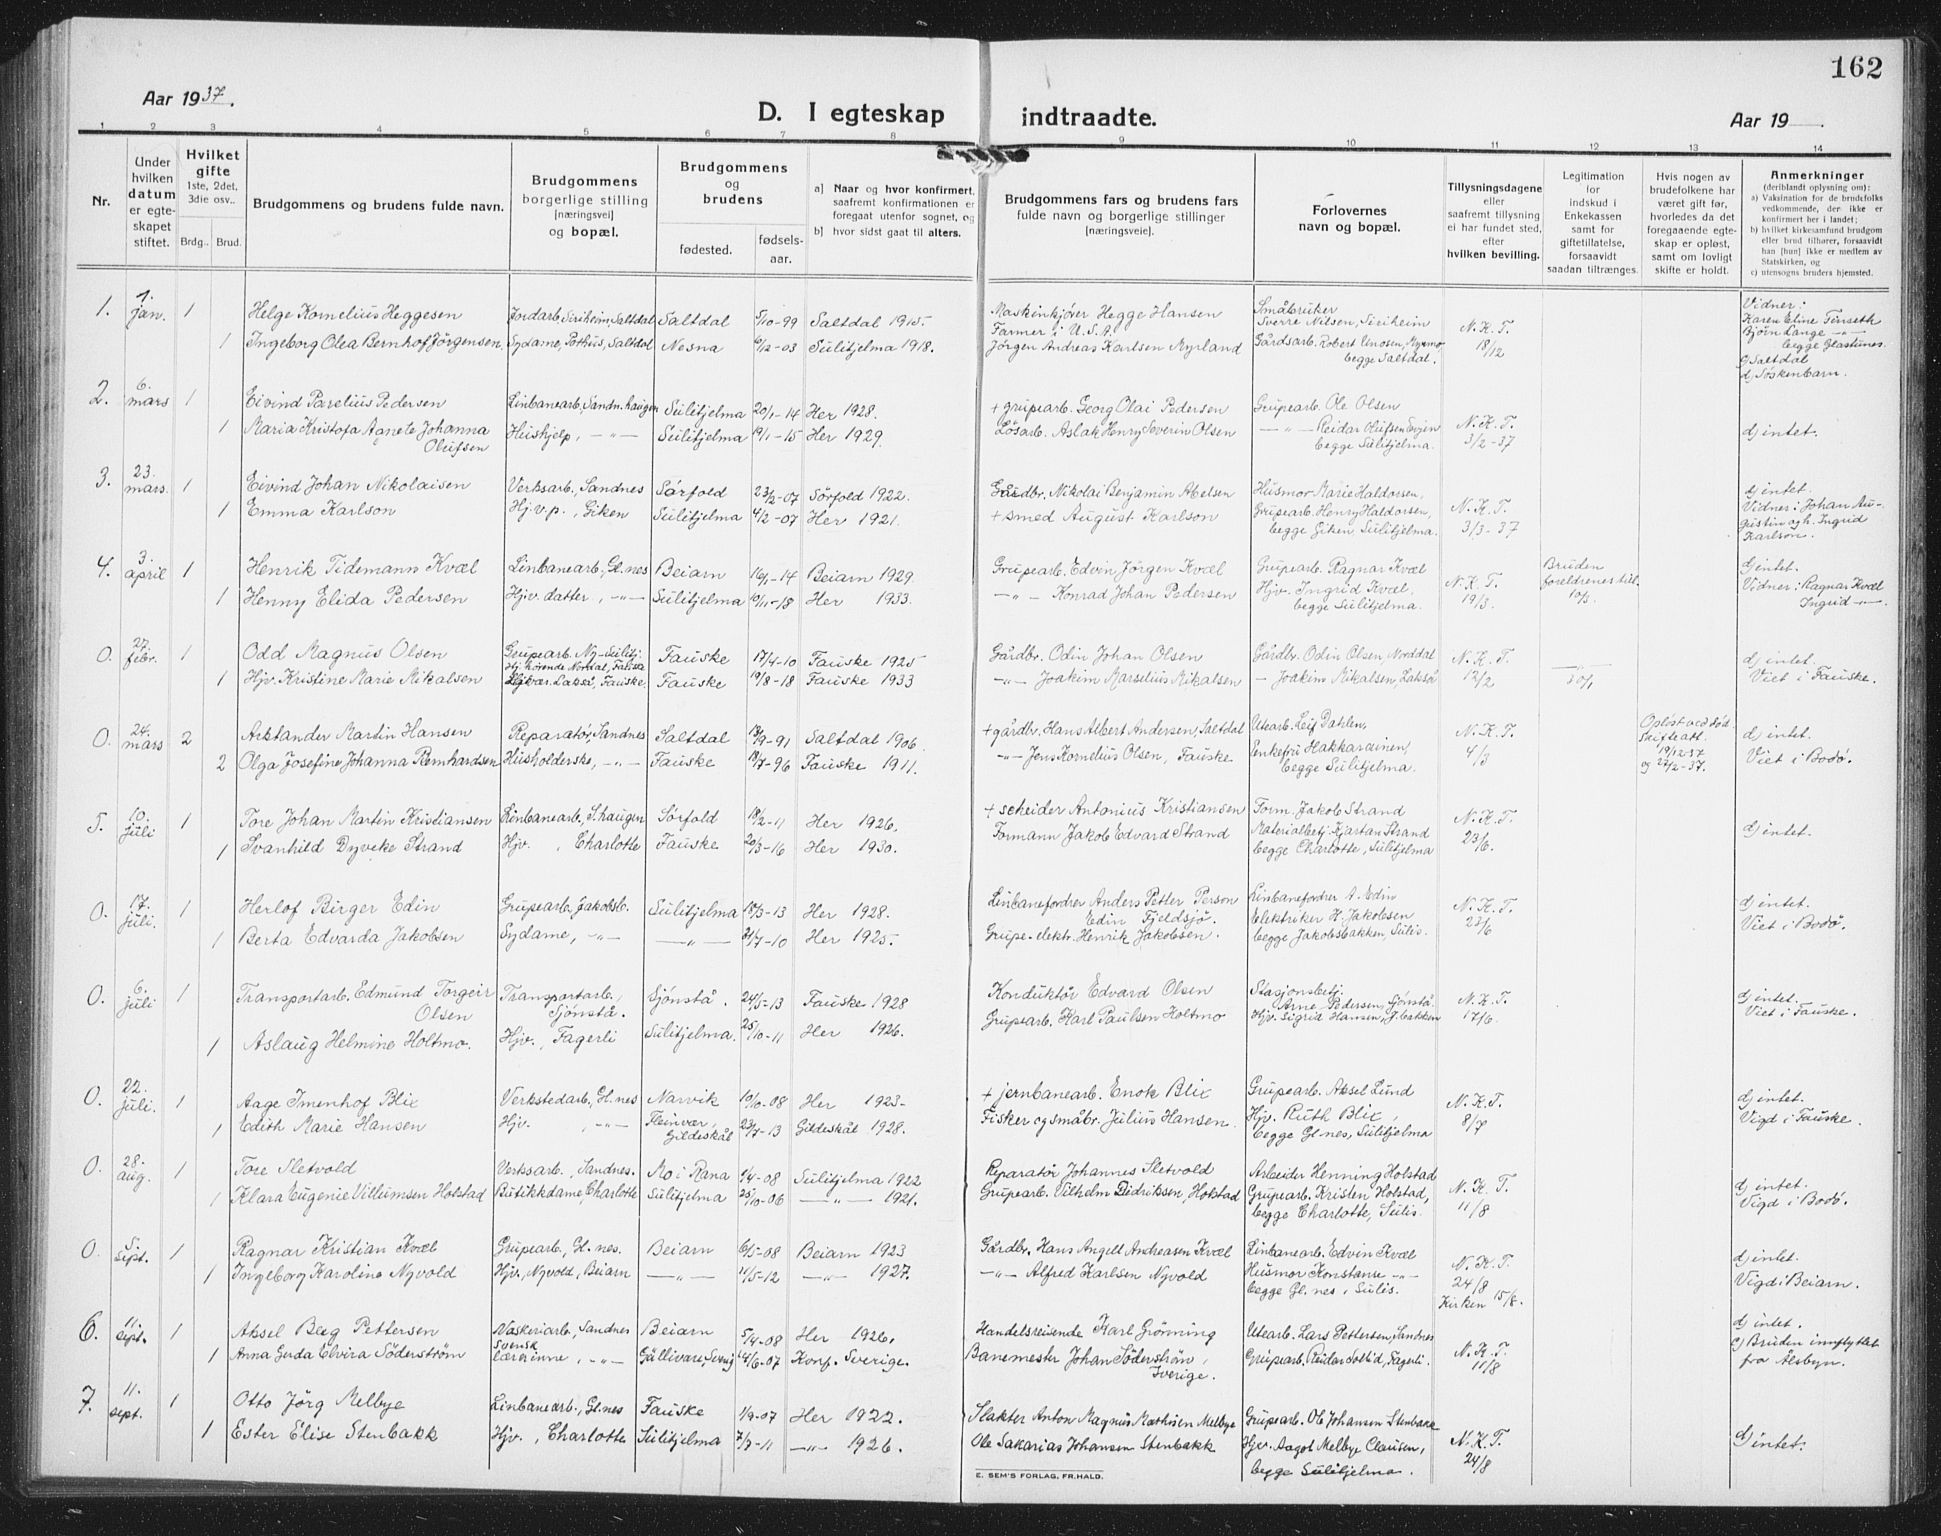 162
Aar 1937.
D. I egteskap indtraadte.
Aar 19
1 2 3 4 5 6 7 8 9 10 11 12 13 14
Nr.
Under hvilken datum er egteskapet stiftet.
Hvilket gifte 1ste, 2det, 3die osv..
Brdg.. Brud.
Brudgommens og brudens fulde navn.
Brudgommens borgerlige stilling [næringsvei] og bopæl.
Brudgommens og brudens
fødested.
fødselsaar.
a] Naar og hvor konfirmert, saafremt konfirmationen er foregaat utenfor sognet, og
b] hvor sidst gaat til alters.
Brudgommens fars og brudens fars fulde navn og borgerlige stillinger [næringsveie].
Forlovernes navn og bopæl.
Tillysningsdagene eller saafremt tillysning ei har fundet sted, efter hvilken bevilling.
Legitimation for indskud i Enkekassen samt for giftetillatelse, forsaavidt saadan tiltrænges.
Hvis nogen av brudefolkene har været gift før, hvorledes da det foregaaende egteskap er opløst, samt om lovligt skifte er holdt.
Anmerkninger (deriblandt oplysning om):
a) Vaksination for de brudefolks vedkommende, der ikke er konfirmert her i landet;
b) hvilket kirkesamfund brudgom eller brud tilhører, forsaavidt han [hun] ikke er medlem av Statskirken, og
c) utensogns bruders hjemsted.
1. 1. jan. 1 Helge Kornelius Heggesen Jordarb. Siriheim, Saltdal Saltdal 5/10-99 Saltdal 1915. Maskinkjører Hegge Hansen Småbruker Sverre Nilsen, Siriheim N.K.T. 18/12 Vidner: Karen Eline Finseth
1 Ingeborg Olea Bernhof Jörgensen Sydame, Pothus, Saltdal Nesna 6/12-03 Sulitjelma 1918. Farmer i U.S.A. Jörgen Andreas Karlsen Myrland Gårdsarb. Robert Knosen, begge Saltdal. Bjørn Lange -"- begge Glastunes. c) Saltdal d) Søskenbarn.
2. 6. mars 1 Eivind Parelius Pedersen Linbanearb., Sandn. haugen Sulitjelma 20/1-14 Her 1928. + grupearb. Georg Olai Pedersen Grupearb. Ole Olsen N.K.T. 3/2-37 d) intet.
1 Maria Kristofa Agnete Johanna Olufsen Hushjelp, -"- Sulitjelma 19/1-15 Her 1929. Løsarb. Aslak Henry Severin Olsen -"- Reidar Olufsen Evjen begge Sulitjelma.
3. 23. mars. 1 Eivind Johan Nikolaisen Verksarb., Sandnes Sørfold 23/2-07 Sörfold 1922. Gårdbr. Nikolai Benjamin Abelsen Husmor Marie Haldorsen, N.K.T. 3/3-37 d) intet.
1 Emma Karlson Hj.v.p., Giken Sulitjelma 4/2-07 Her 1921. + smed August Karlson Grupearb. Henry Haldorsen, begge Giken, Sulitjelma. Vidner: Johan Augustin og h. Ingrid Karlson.
4. 3. april 1 Henrik Tidemann Kvæl Linbanearb., Gl.nes Beiarn 16/1-14 Beiarn 1929. Grupearb. Edvin Jörgen Kvæl Grupearb. Ragnar Kvæl N.K.T. 19/3. Bruden foreldrenes till. 10/3 d) intet.
1 Henny Elida Pedersen Hjv. datter, -"- Sulitjelma 19/11-18 Her 1933. -"- Konrad Johan Pedersen Hjv. Ingrid Kvæl, begge Sulitjelma. Vidner: Ragnar Kvæl Ingrid -"-
0. 27. febr. 1 Odd Magnus Olsen Grupearb. Ny-Sulitj. Hj. hørende Nordal, Fauske Fauske 17/4-10 Fauske 1925 Gårdbr. Odin Johan Olsen Gårdbr. Odin Olsen, Norddal N.K.T. 12/2 -"- 30/1 d) intet.
1 Hjv. Kristine Marie Mikalsen Hjvær. Lakså, Fauske. Fauske 19/8-18 Fauske 1933 -"- Joakim Marselius Mikalsen - Joakim Mikalsen, Lakså Viet i Fauske.
0. 24. mars 2 Arktander Martin Hansen Reparatør, Sandnes Saltdal 13/9-91 Saltdal 1906. + gårdbr. Hans Albert Andersen, Saltdal Utearb. Leif Dahlen, N.K.T. 4/3 Opløst ved död. Skifteatt. 19/12-37 og 27/2-37. d) intet.
2 Olga Josefine Johanna Reinhardsen Husholderske, -"- Fauske 18/7-96 Fauske 1911. -"- Jens Kornelius Olsen, Fauske Enkefru Hakkarainen, begge Sulitjelma. Viet i Bodø.
5. 10. juli 1 Tore Johan Martin Kristiansen Linbanearb., S.haugen Sørfold 18/2-11 Her 1926. + scheider Antonius Kristiansen Form. Jakob Strand N.K.T. 23/6. d) intet.
1 Svanhild Dyveke Strand Hjv., Charlotte Fauske 20/3-16 Her 1930. Formann Jakob Edvard Strand Materialbetj. Kjartan Strand begge Charlotte, Sulitjelma
0. 17. juli. 1 Herlof Birger Edin Grupearb., Jakobsb. Sulitjelma 18/3-13 Her 1928. Linbanefordrer Anders Petter Person Edin Fjeldsjø. Linbanefordrer A. Edin N.K.T. 23/6 d) intet.
1 Berta Edvarda Jakobsen Sydame, -"- -"- 31/7-10 Her 1925. Grupe-elektr. Henrik Jakobsen. Elektriker H. Jakobsen begge Jakobsbakken, Sulis. Viet i Bodø.
0. 6. juli 1 Transportarb. Edmund Torgeir Olsen Transportarb., Sjönstå. Sjönstå. 24/5-13 Fauske 1928 Konduktør Edvard Olsen Stasjonsbetj. Arne Pedersen, Sjönstå. N.K.T. 17/6. d) intet.
1 Aslaug Helmine Holtmo. Hjv., Fagerli Sulitjelma. 25/10-11 Her 1926. Grupearb. Karl Paulsen Holtmo Hjv. Sigrid Hansen, J.bakken Viet i Fauske.
0. 22. juli. 1 Aage Imenhof Blix Verkstedarb., Gl.nes Narvik 10/10-08 Her 1923- + jernbanearb. Enok Blix Grupearb. Aksel Lund N.K.T. 8/7 d) intet.
1 Edith Marie Hansen Hjv., -"- Fleinvær, Gildeskål 23/7-13 Gildeskål 1928. Fisker og småbr. Julius Hansen. Hjv. Ruth Blix, begge Gl.nes, Sulitjelma Vigd i Fauske.
0. 28. aug. 1 Tore Sletvold Verksarb., Sandnes. Mo i Rana 9/4-08 Sulitjelma 1922 Reparatør Johannes Sletvold Arbeider Henning Holstad N.K.T. 11/8 d) intet.
1 Klara Eugenie Villumsen Holstad Butikkdame, Charlotte Sulitjelma 25/10-06 -"- 1921. Grupearb. Vilhelm Didriksen, Holstad Grupearb. Kristen Holstad, begge Charlotte, Sulis. Vigd i Bodø.
0. 5. sept. 1 Ragnar Kristian Kvæl Grupearb., Gl.nes. Beiarn 6/5-08 Beiarn 1923 Gårdbr. Hans Angell Andreasen Kvæl Linbanearb. Edvin Kvæl N.K.T. 24/8 Kirken 15/8. d) intet.
1 Ingeborg Karoline Nyvold Hjv., Nyvold, Beiarn -"- 11/5-12 -"- 1927. -"- Alfred Karlsen Nyvold Husmor Konstanse -"- begge Gl.nes, Sulis. Vigd i Beiarn.
6. 11. sept. 1 Aksel Berg Pettersen Vaskeriarb., Sandnes Beiarn 5/4-08 Her 1926. Handelsreisende Karl Grönning Utearb. Lars Pettersen, Sandnes N.K.T. 11/8 d) intet.
1 Anna Gerda Elvira Söderström Svensk lærerinne, -"- Gällivare, Sverig 14/6-07 Konf. Sverige. Banemester Johan Söderström, Sverige. Grupearb. Reidar Soltid, Fagerli. c) Bruden innflyttet fra Älsbyn.
7. 11. sept. 1 Otto Jörg Melbye Linbanearb., Gl.nes Fauske 1/9-07 Her 1922. Slakter Anton Magnus Mathisen Melbye Grupearb. Ole Johansen Stenbakk N.K.T. 24/8 d) intet.
1 Ester Elise Stenbakk Hjv., Charlotte Sulitjelma 7/7-11 -"- 1926. Ole Sakarias Johansen Stenbakk Hjv. Aagot Melbye Clausen, begge Sulitjelma.
E. SEM'S FORLAG, FR.HALD.